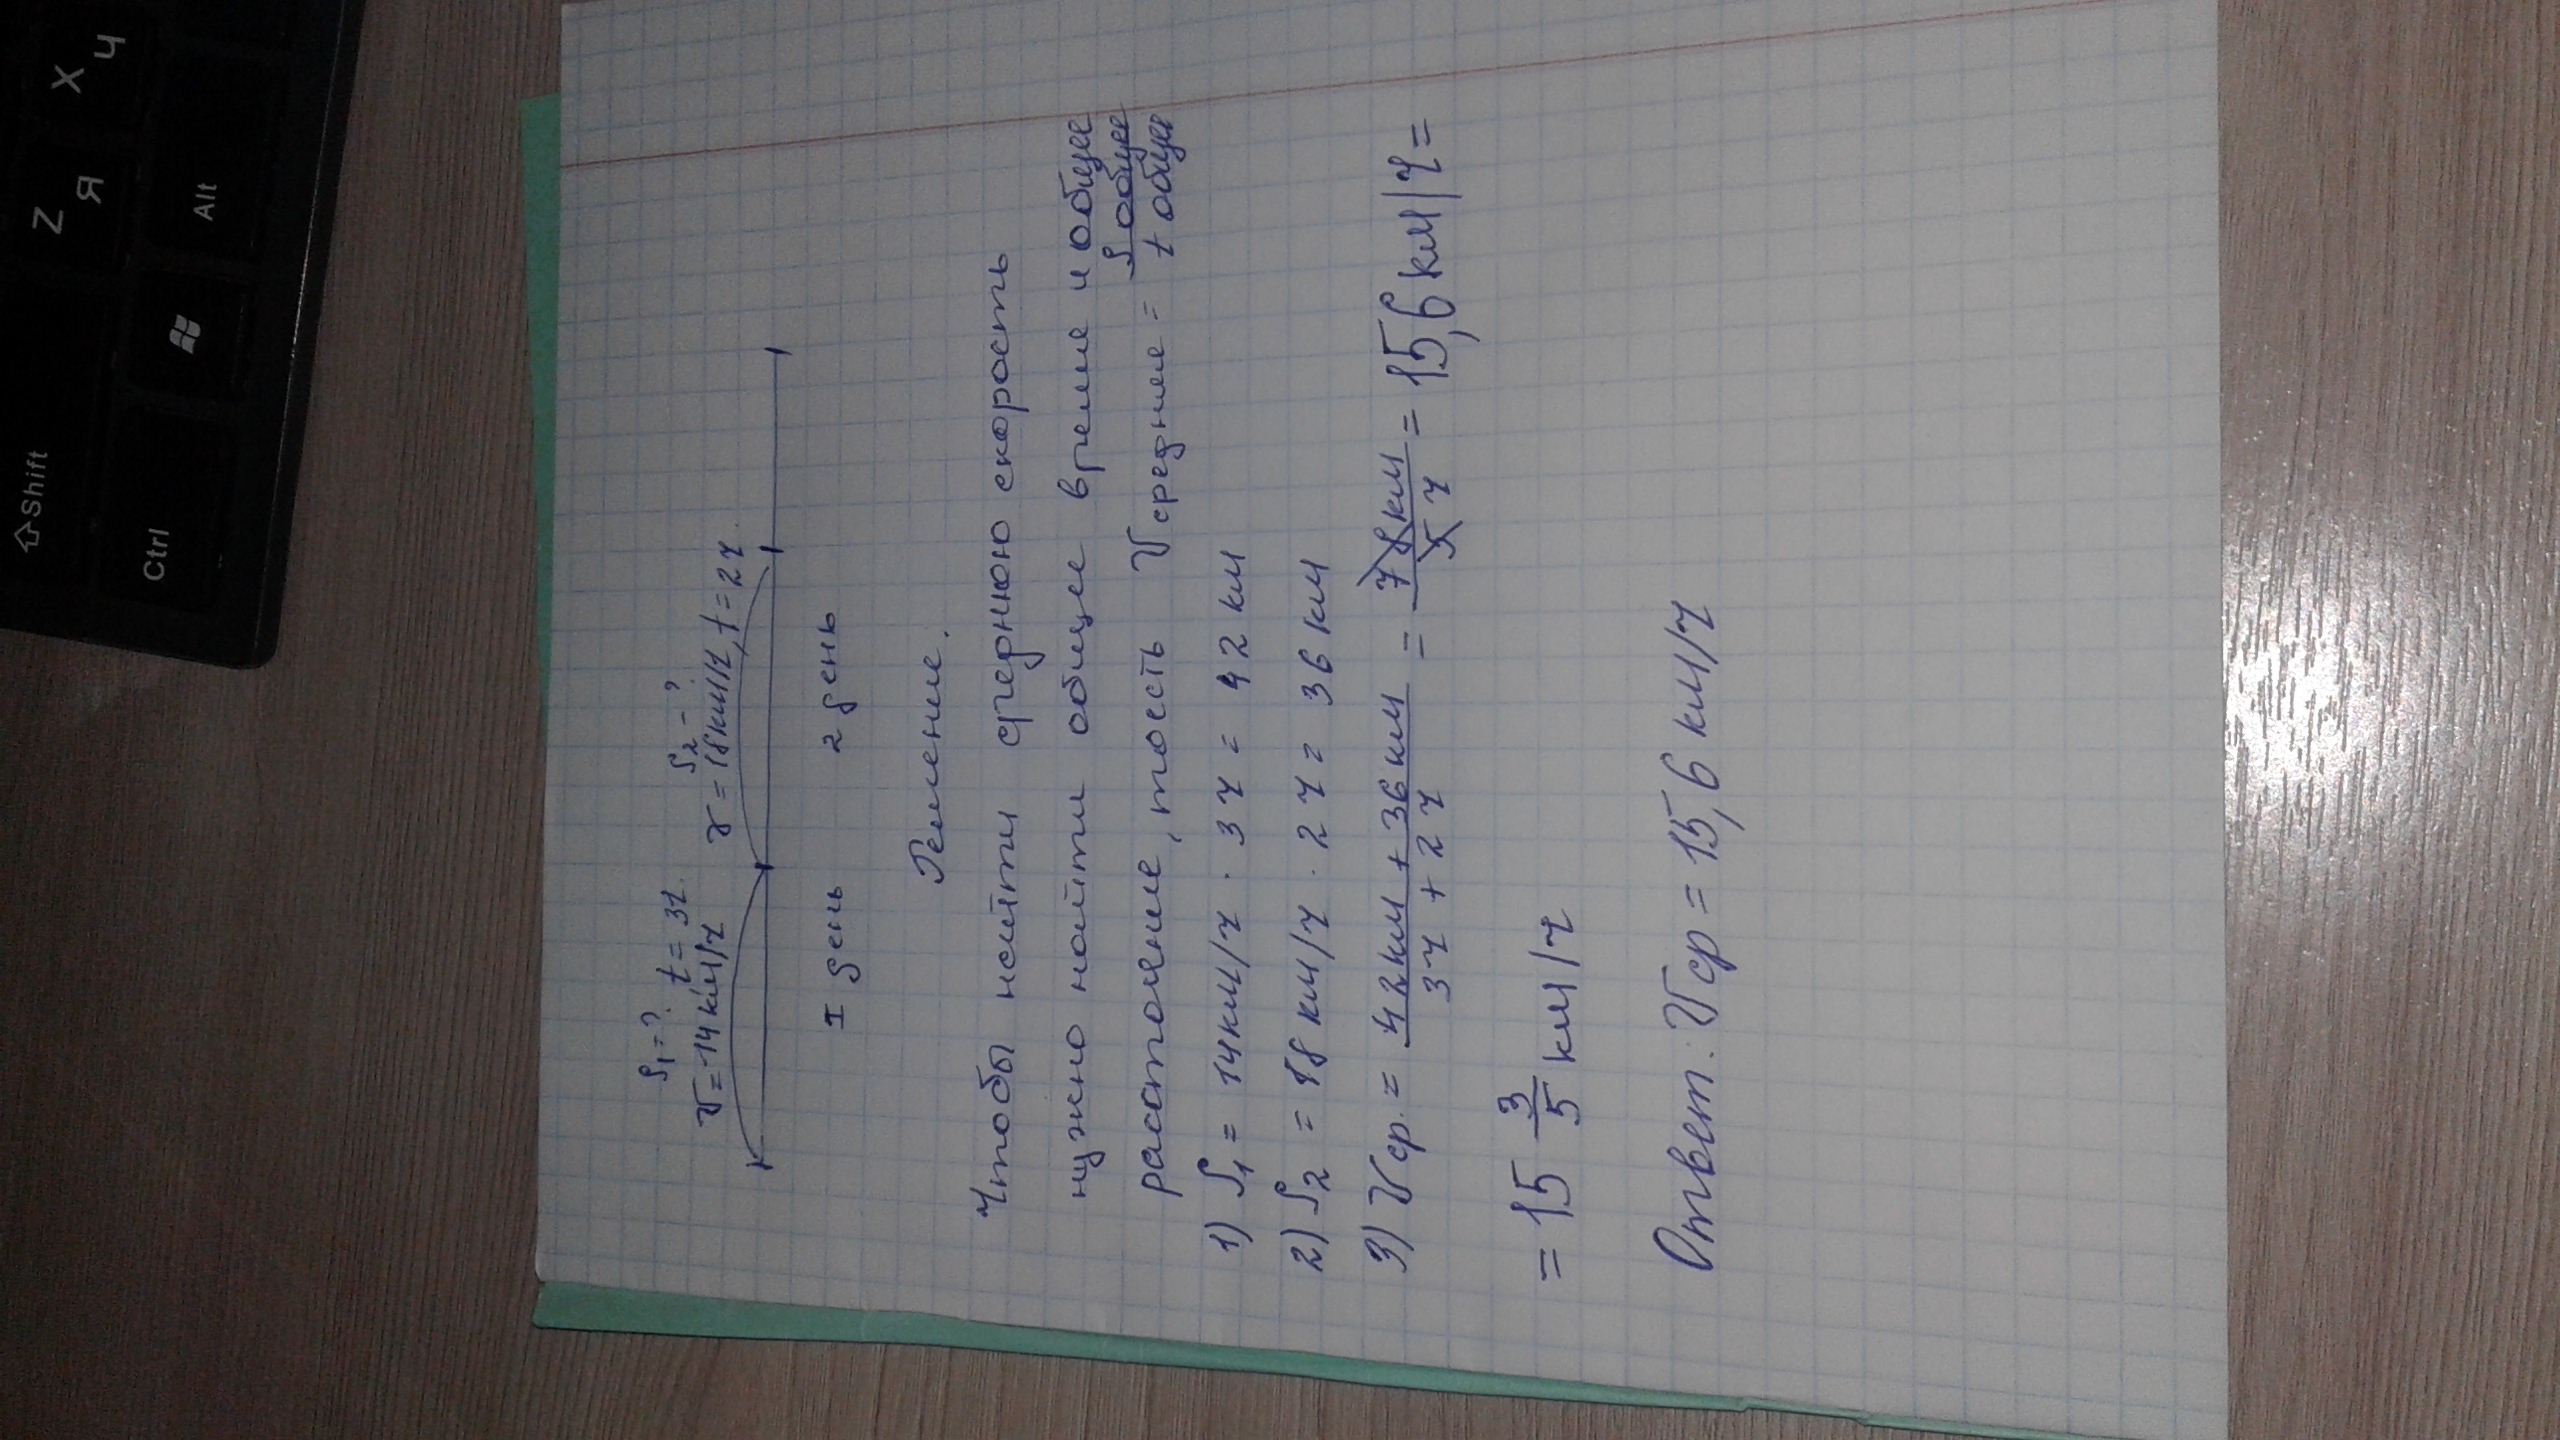 S₁=? t = 3ч.
V=14 км/ч
S₂ - ?
V = 18км/ч, t = 2ч.
I день 2 день
Решение.
Чтобы найти среднюю скорость
нужно найти общее время и общее
расстояние, тоесть V среднее = S общее / t общее
1) S₁ = 14км/ч · 3ч = 42 км
2) S₂ = 18 км/ч · 2ч = 36 км
3) Vср. = 42км + 36км / 3ч + 2ч = 78км / 5ч = 15,6 км/ч =
= 15 3/5 км/ч
Ответ: Vср = 15,6 км/ч
Shift
Ctrl
Alt
Z Я
X Ч